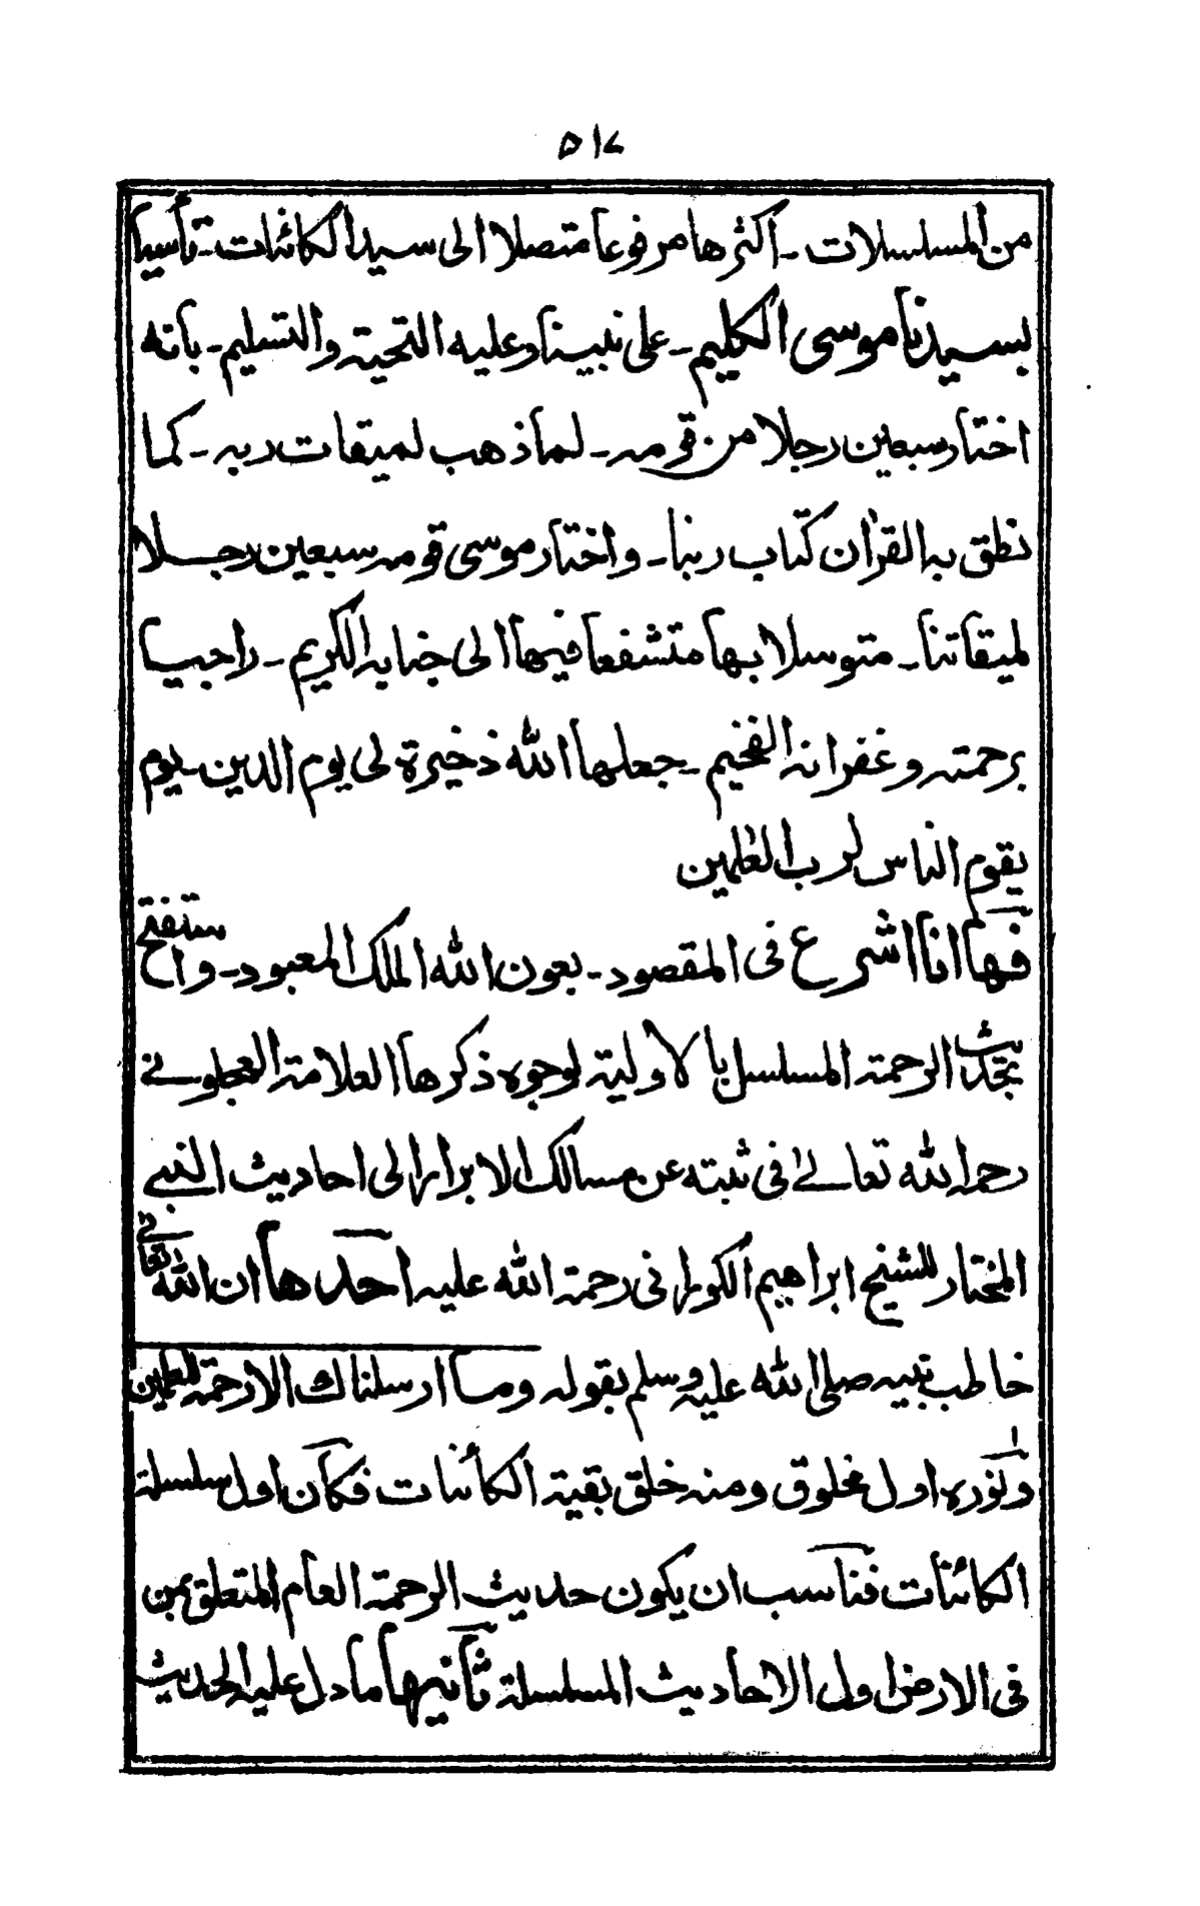 ۵۱۷
من المسلسلات - اكثرها مرفوعا متصلا الى سيد الكائنات - تأسيا
بسيدنا موسى الكليم - على نبينا وعليه التحية والتسليم - بانه
اختار سبعين رجلا من قومه - لما ذهب لميقات ربه - كما
نطق به القرآن كتاب ربنا - واختار موسى قومه سبعين رجلا
لميقاتنا - متوسلا بها متشفعا فيها الى جنابه الكريم - راجيا
برحمته وغفرانه الفخيم - جعلها الله ذخيرة لى يوم الدين - يوم
يقوم الناس لرب العٰلمين
فها انا اشرع فى المقصود - بعون الله الملك المعبود - واستفتح
بحديث الرحمة المسلسل بالاولية لوجوه ذكرها العلامة العجلونے
رحمه الله تعالےٰ فى ثبته عن مسالك الابرار الى احاديث النبے
المختار للشيخ ابراهيم الكورانى رحمة الله عليه احدها ان الله تعالے
خاطب نبيه صلى الله عليه وسلم بقوله وما ارسلناك الا رحمة للعٰلمين
ونوره اول مخلوق ومنه خلق بقية الكائنات فكان اول سلسلة
الكائنات فناسب ان يكون حديث الرحمة العام المتعلق بمن
فى الارض اول الاحاديث المسلسلة ثانيها ما دل عليه الحديث